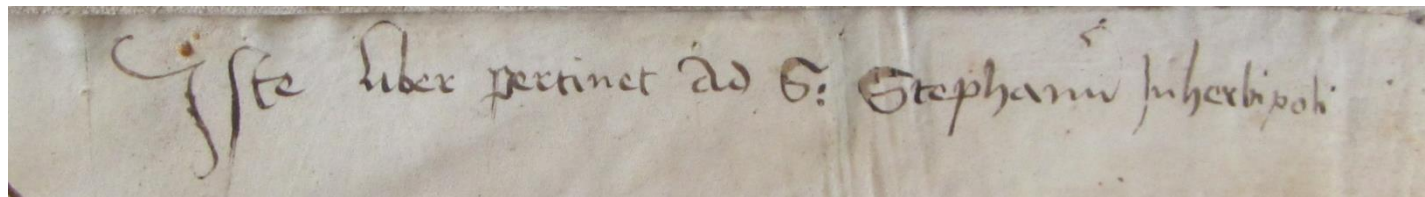 Iste liber pertinet Ad S: Stephanū Inherbipoli